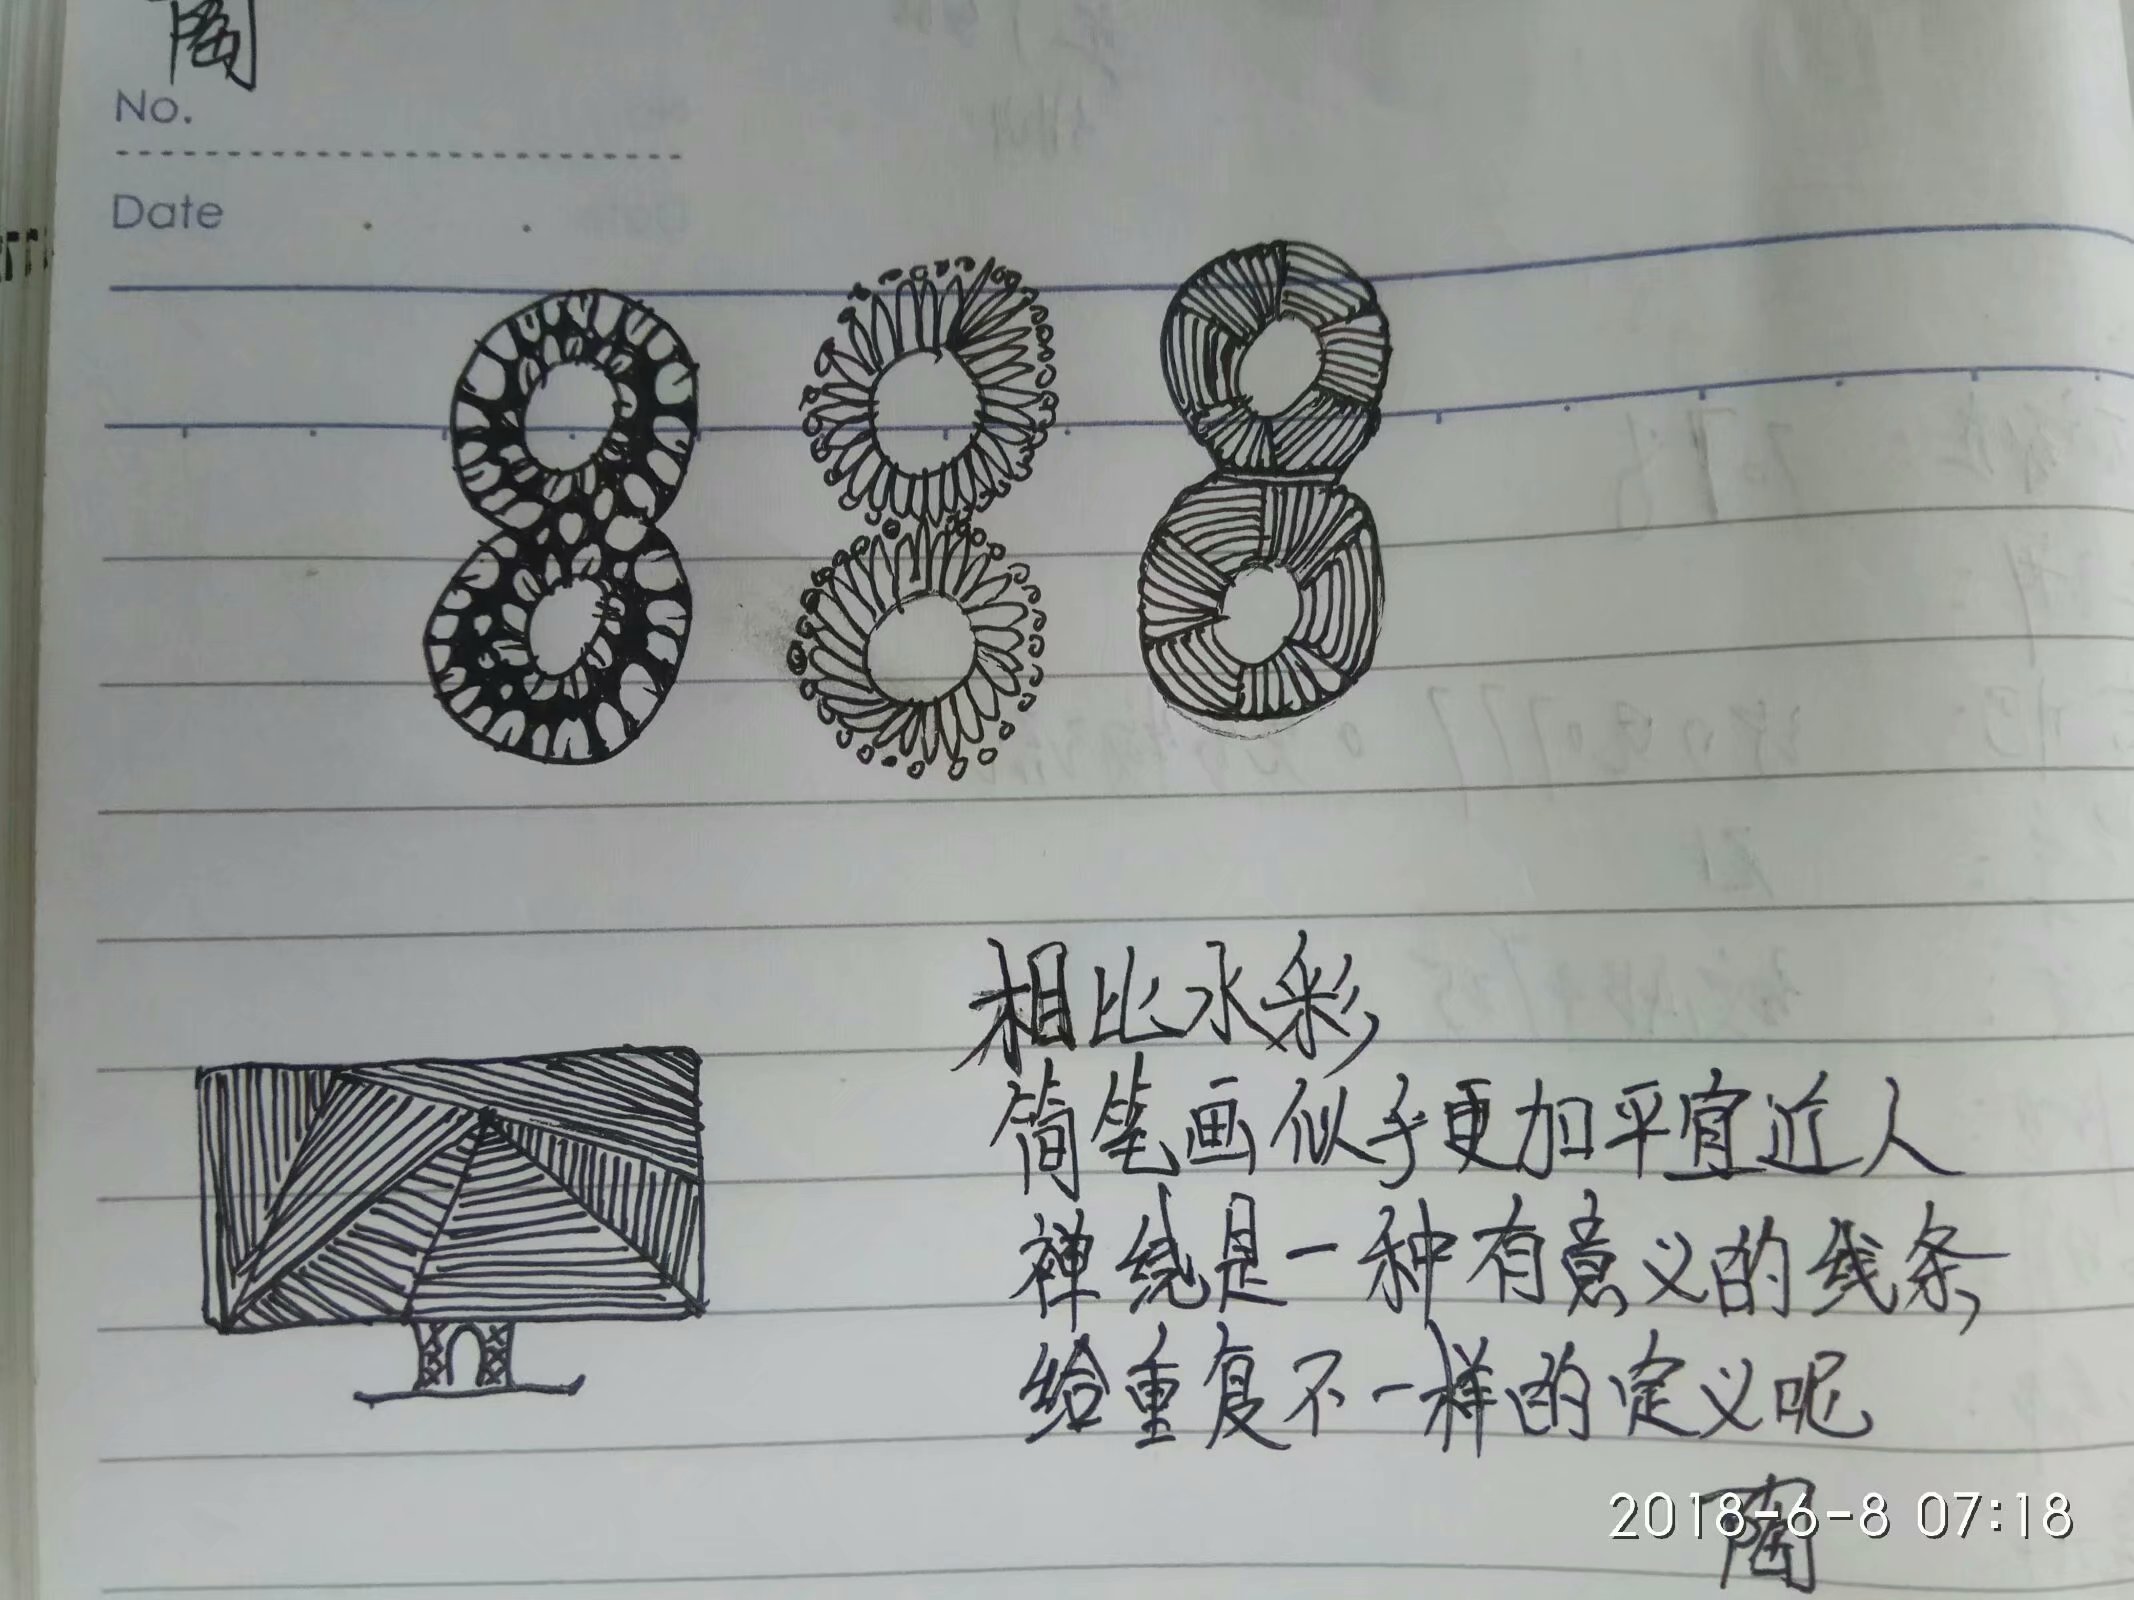 陶
No.
Date
888
相比水彩
简笔画似乎更加平宜近人
禅绕是一种有意义的线条
给重复不一样的定义呢
陶
2018-6-8 07:18